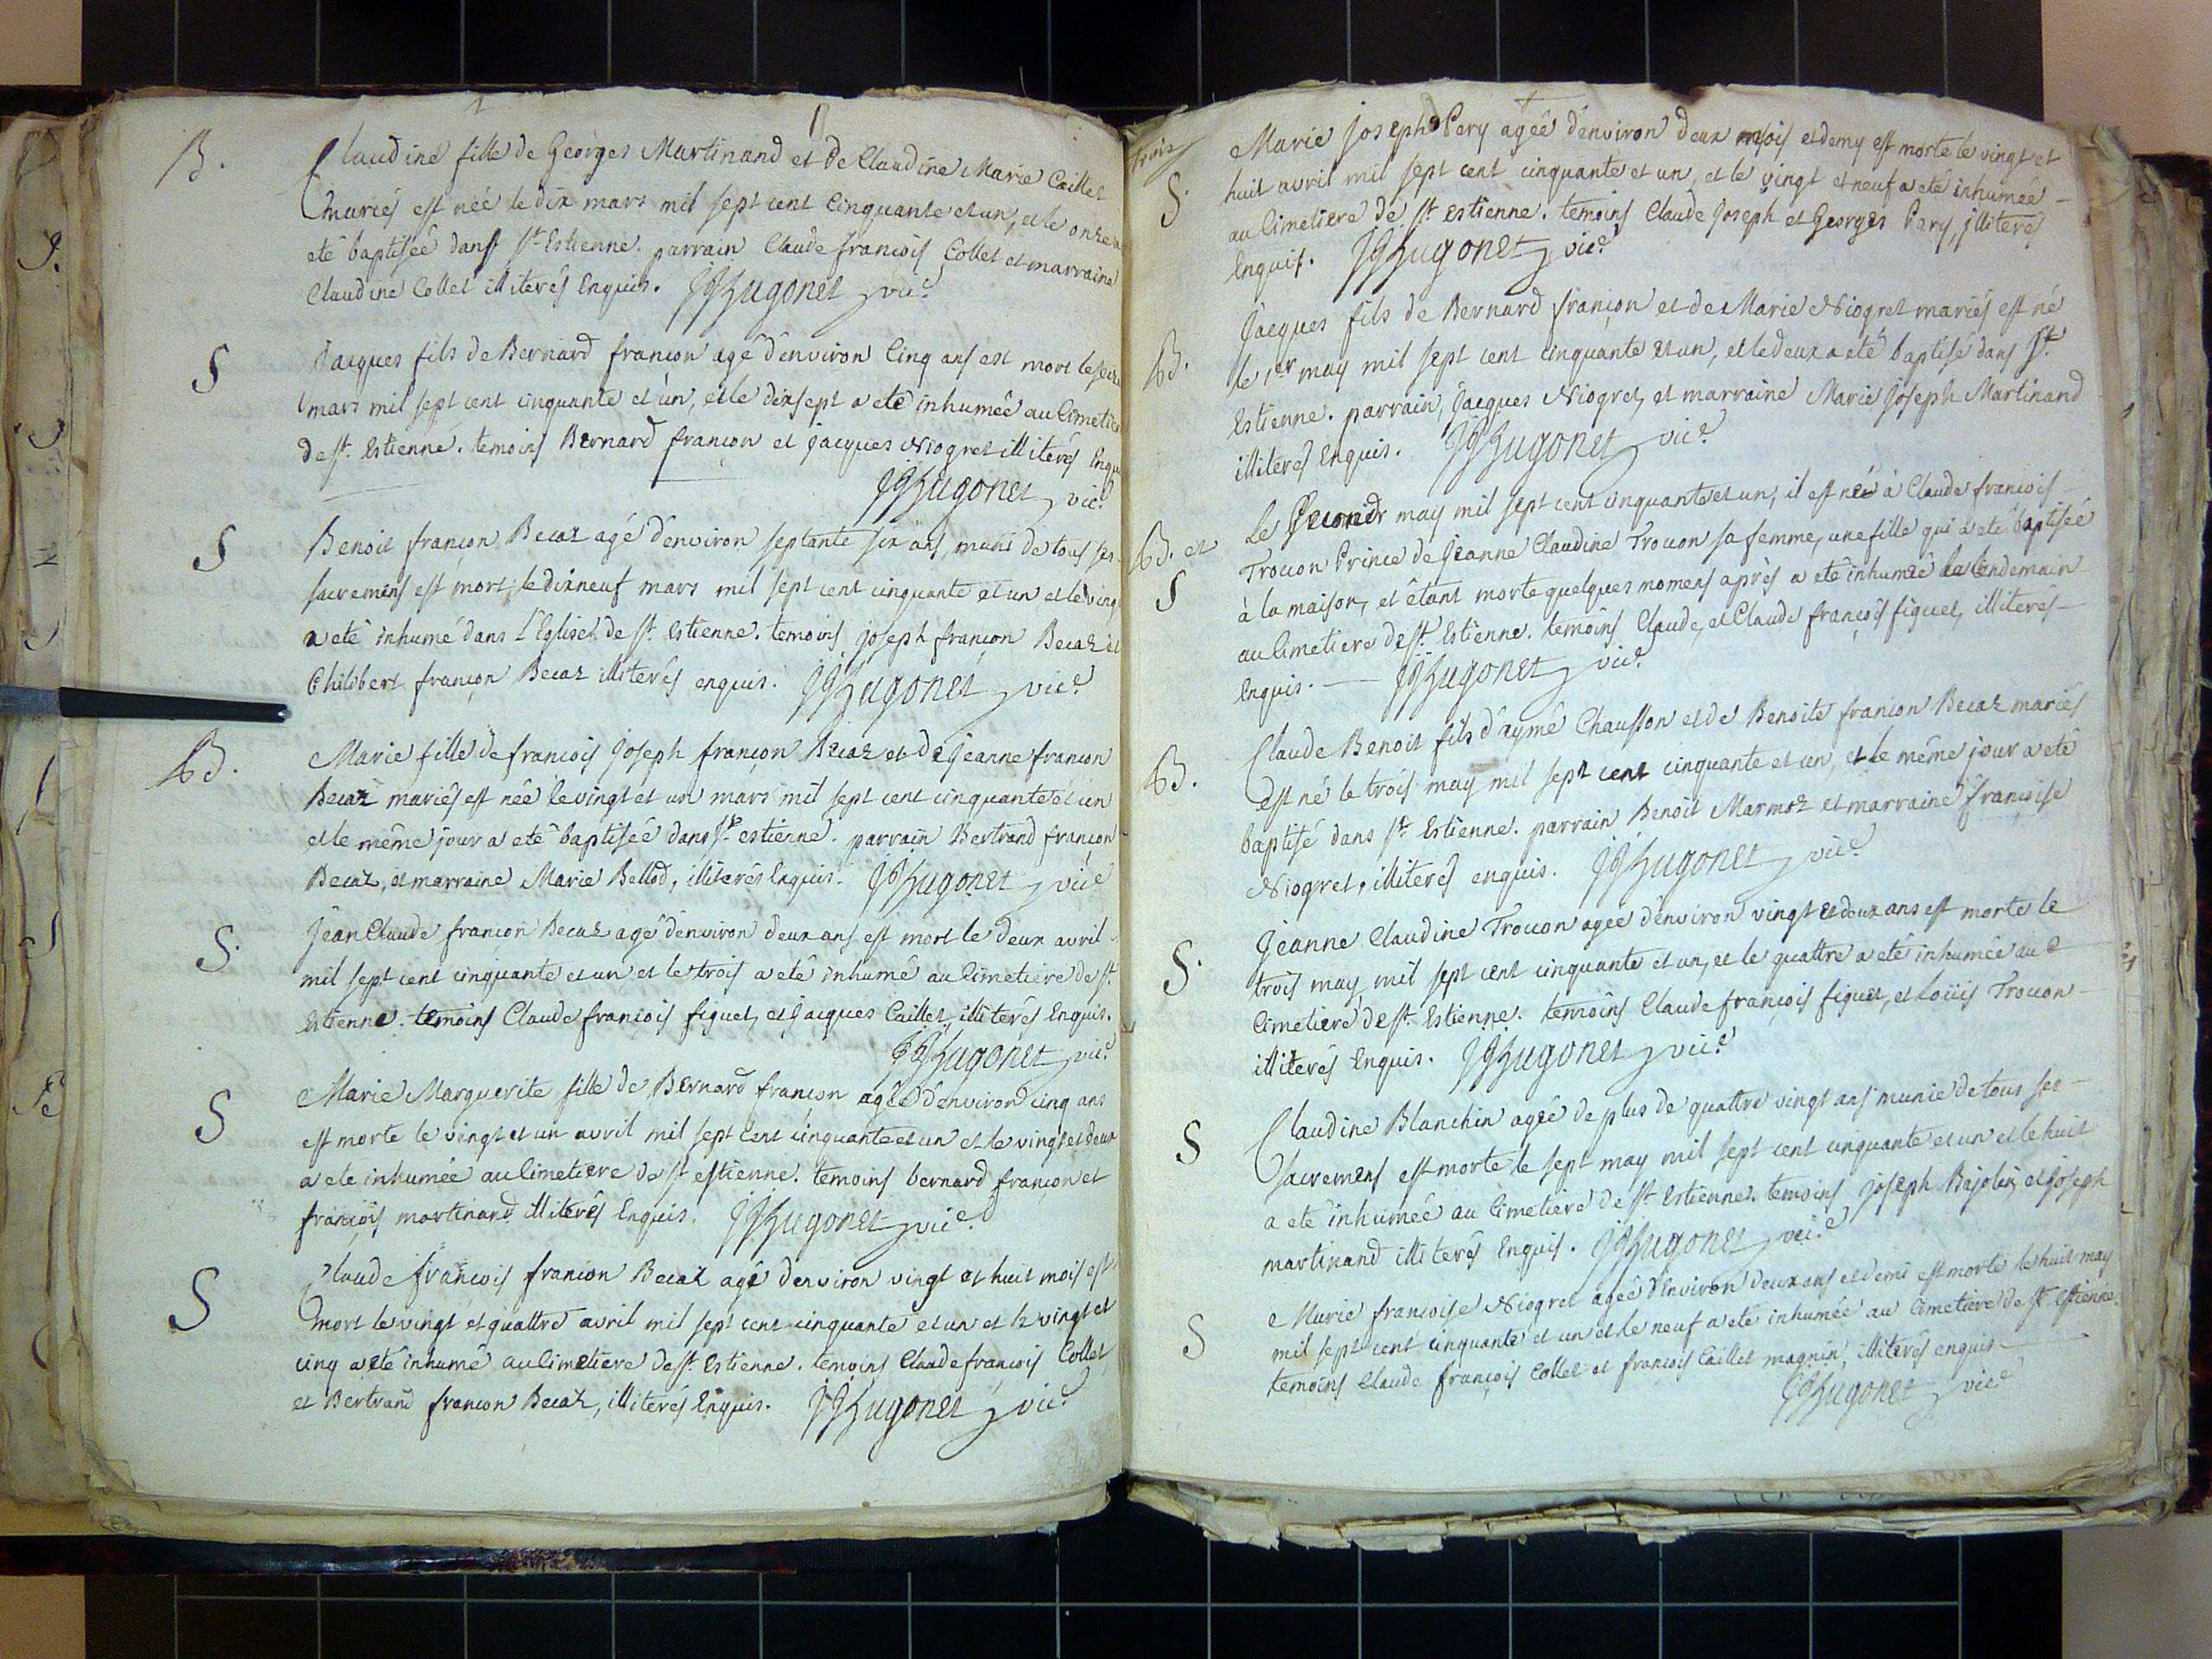 B.
Claudine fille de Georges Martinand et de Claudine Marie Caillet
mariés est née le dix mars mil sept cent cinquante et un, et le onze a
eté baptisée dans st Estienne. parrain Claude françois Collet et marraine
Claudine Collet illiterés Enquis. JJHugonet vice
S
Jacques fils de Bernard françon agé d'environ Cinq ans est mort le seize
mars mil sept cent cinquante et un, et le dixsept a eté inhumée au Cimetiere
de st. Estienne. temoins Bernard françon et jacques Niogret illiterés Enquis
JJHugonet vice
S
Benoit françon Becaz agé d'environ septante six ans, muni de tous ses
sacremens est mort, le dixneuf mars mil sept cent cinquante et un et le vingt
a eté inhumé dans L'Eglise de st. Estienne. temoins joseph françon Becaz et
Philibert françon Becaz illiterés enquis. JJHugonet vice
B.
Marie fille de francois Joseph françon Becaz et de Jeanne françon
Becaz mariés est née le vingt et un mars mil sept cent cinquante et un
et le même jour a eté baptisée dans st estienne. parrain Bertrand françon
Becaz, et marraine Marie Bellod, illiterés Enquis. JJHugonet vice
S.
Jean Claude françon Becaz agé d'environ deux ans est mort le deux avril
mil sept cent cinquante et un et le trois a eté inhumé au Cimetiere de st
Estienne. temoins Claude francois figuet, et Jacques Caillet, illiterés Enquis.
JJHugonet vice
S
Marie Marguerite fille de Bernard françon agée d'environ cinq ans
est morte le vingt et un avril mil sept cent cinquante et un et le vingt et deux
a ete inhumée au Cimetiere de st estienne. temoins bernard françon et
françois martinand illiterés Enquis. JJHugonet vice
S
Claude françois françon Becaz agé d'environ vingt et huit mois est
mort le vingt et quattre avril mil sept cent cinquante et un et le vingt et
cinq a eté inhumé au Cimetiere de st. Estienne. temoins Claude francois Collet
et Bertrand françon Becaz, illiterés Enquis. JJHugonet vice
trois
S.
Marie Joseph Pery agée d'environ deux mois et demy est morte le vingt et
huit avril mil sept cent cinquante et un, et le vingt et neuf a eté inhumée
au Cimetiere de st Estienne. temoins Claude Joseph et Georges Pery, jlliteré
Enquis. JJHugonet vice
B.
Jacques fils de Bernard françon et de Marie Niogret mariés est né
le 1er may mil sept cent cinquante et un, et le deux a eté baptisé dans st
Estienne. parrain, Jacques Niogret, et marraine Marie Joseph Martinand
illiterés Enquis. JJHugonet vice
B. et
S
Le second may mil sept cent cinquante et un, il est née à Claude francois
Trocon Prince de Jeanne Claudine Trocon sa femme, une fille qui a eté baptisée
à la maison, et étant morte quelques momens après a eté inhumée le lendemain
au Cimetiere de st Estienne. temoins Claude, et Claude françois figuet, illiterés
Enquis. JJHugonet vice
B.
Claude Benoit fils d'aymé Chausson et de Benoite françon Becaz mariés
est né le trois may mil sept cent cinquante et un, et le même jour a eté
baptisé dans st Estienne. parrain Benoit Marmoz et marraine françoise
Niogret, illiterés enquis. JJHugonet vice
S.
Jeanne Claudine Trocon agee d'environ vingt et deux ans est morte le
trois may mil sept cent cinquante et un, et le quattre a eté inhumée au
Cimetiere de st. Estienne. temoins Claude françois figuet, et Loüis Trocon
illiterés Enquis. JJHugonet vice
S
Claudine Blanchin agée de plus de quattre vingt ans munie de tous ses
sacremens est morte le sept may mil sept cent cinquante et un et le huit
a eté inhumée au Cimetiere de st Estienne. temoins joseph Bajolin et joseph
martinand illiterés Enquis. JJHugonet vice
S
Marie francoise Niogret agée d'Environ deux ans et demi est morte le huit may
mil sept cent cinquante et un et le neuf a eté inhumée au Cimetiere de st Estienne.
temoins Claude françois Collet et françois Caillet magnin, illiterés enquis
JJHugonet vice